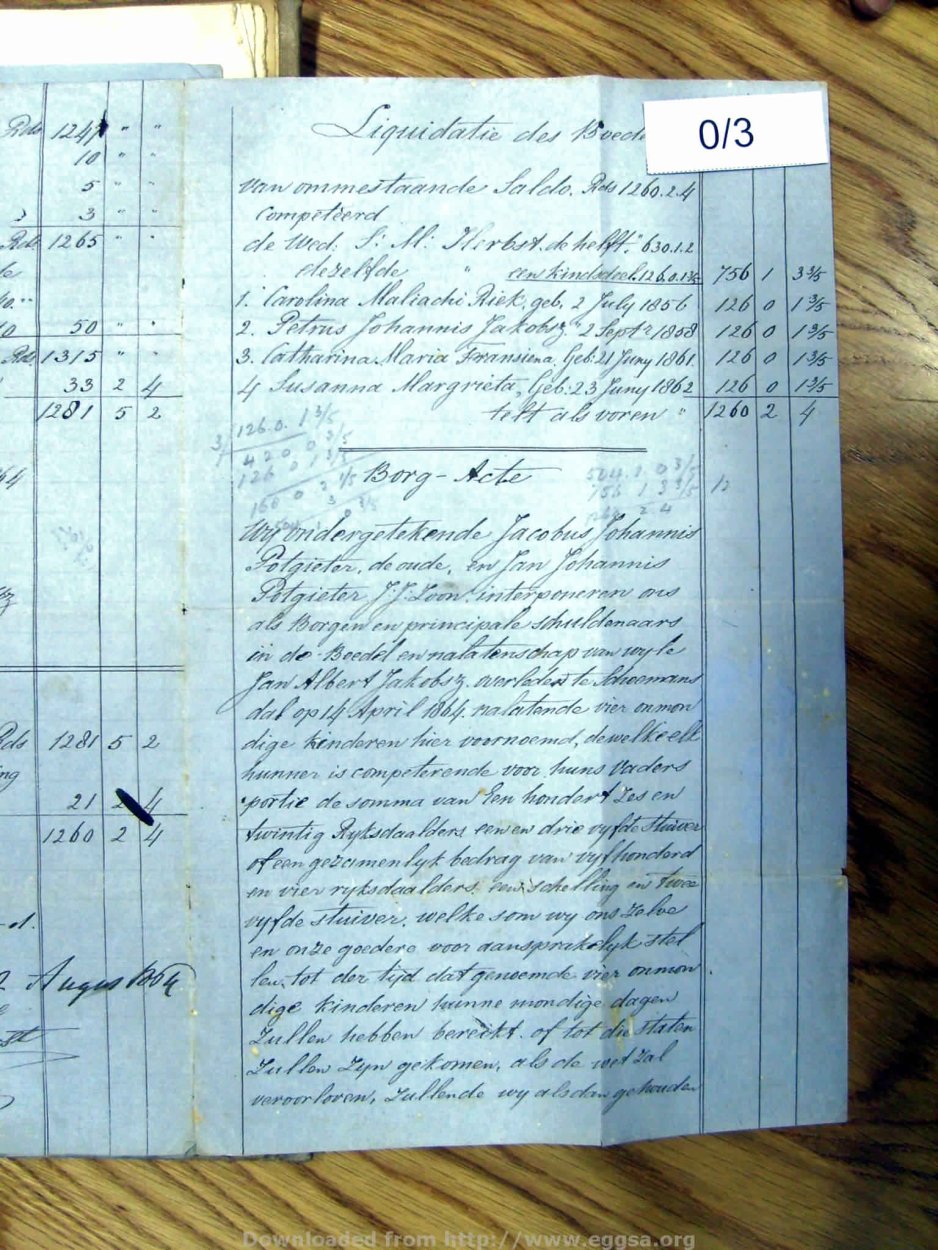 Rds 1247 " "
10 " "
5 " "
3 " "
Rds 1265 " "
50 " "
Rds 1315 " "
33 2 4
1281 5 2
Rds 1281 5 2
21 2 4
1260 2 4
Augus 1864
0/3
Liquidatie des Boede
van ommestaande Saldo. Rds 1260.2.4
Competeerd
de Wed: S: M: Herbst. de helft " 630.1.2
dezelfde " een kindsdeel. 126.0.1 3/5 756 1 3 3/5
1. Carolina Maliachi Riek, geb. 2 July 1856 126 0 1 3/5
2. Petrus Johannis Jakobsz " 2 Sept r 1858 126 0 1 3/5
3. Catharina Maria Fransiena, Geb: 21 Juny 1861. 126 0 1 3/5
4 Susanna Margrieta, Geb. 23 Juny 1862 126 0 1 3/5
telt als voren " 1260 2 4
3/126.0. 1 3/5
420 0
126 0 1 3/5
Borg-Acte
504. 1. 0 3/5
756 1 3 3/5
2 4
12
Wy ondergetekende Jacobus Johannis
Potgieter, de oude, en Jan Johannis
Potgieter J: J: Zoon, interponeren ons
als Borgen en principale schuldenaars
in de Boedel en nalatenschap van wyle
Jan Albert Jakobsz. overleden te Schoemans
dal op 14 April 1864. nalatende vier onmon
dige kinderen hier voornoemd, dewelke elk
hunner is competerende voor huns vaders
portie de somma van Een hondert Zes en
twintig Ryksdaalders een en drie vyfde Stuiver
of een gezamenlyk bedrag van vyfhonderd
en vier ryksdaalders een schelling en twee
vyfde stuiver. welke som wy ons Zelve
en onze goedere voor aansprakelyk stel
len, tot der tyd dat genoemde vier onmon
dige kinderen hunne mondige dagen
Zullen hebben bereikt. of tot die staten
Zullen Zyn gekomen, als de wet Zal
veroorloven, Zullende wy alsdan gehouden
Downloaded from http://www.eggsa.org